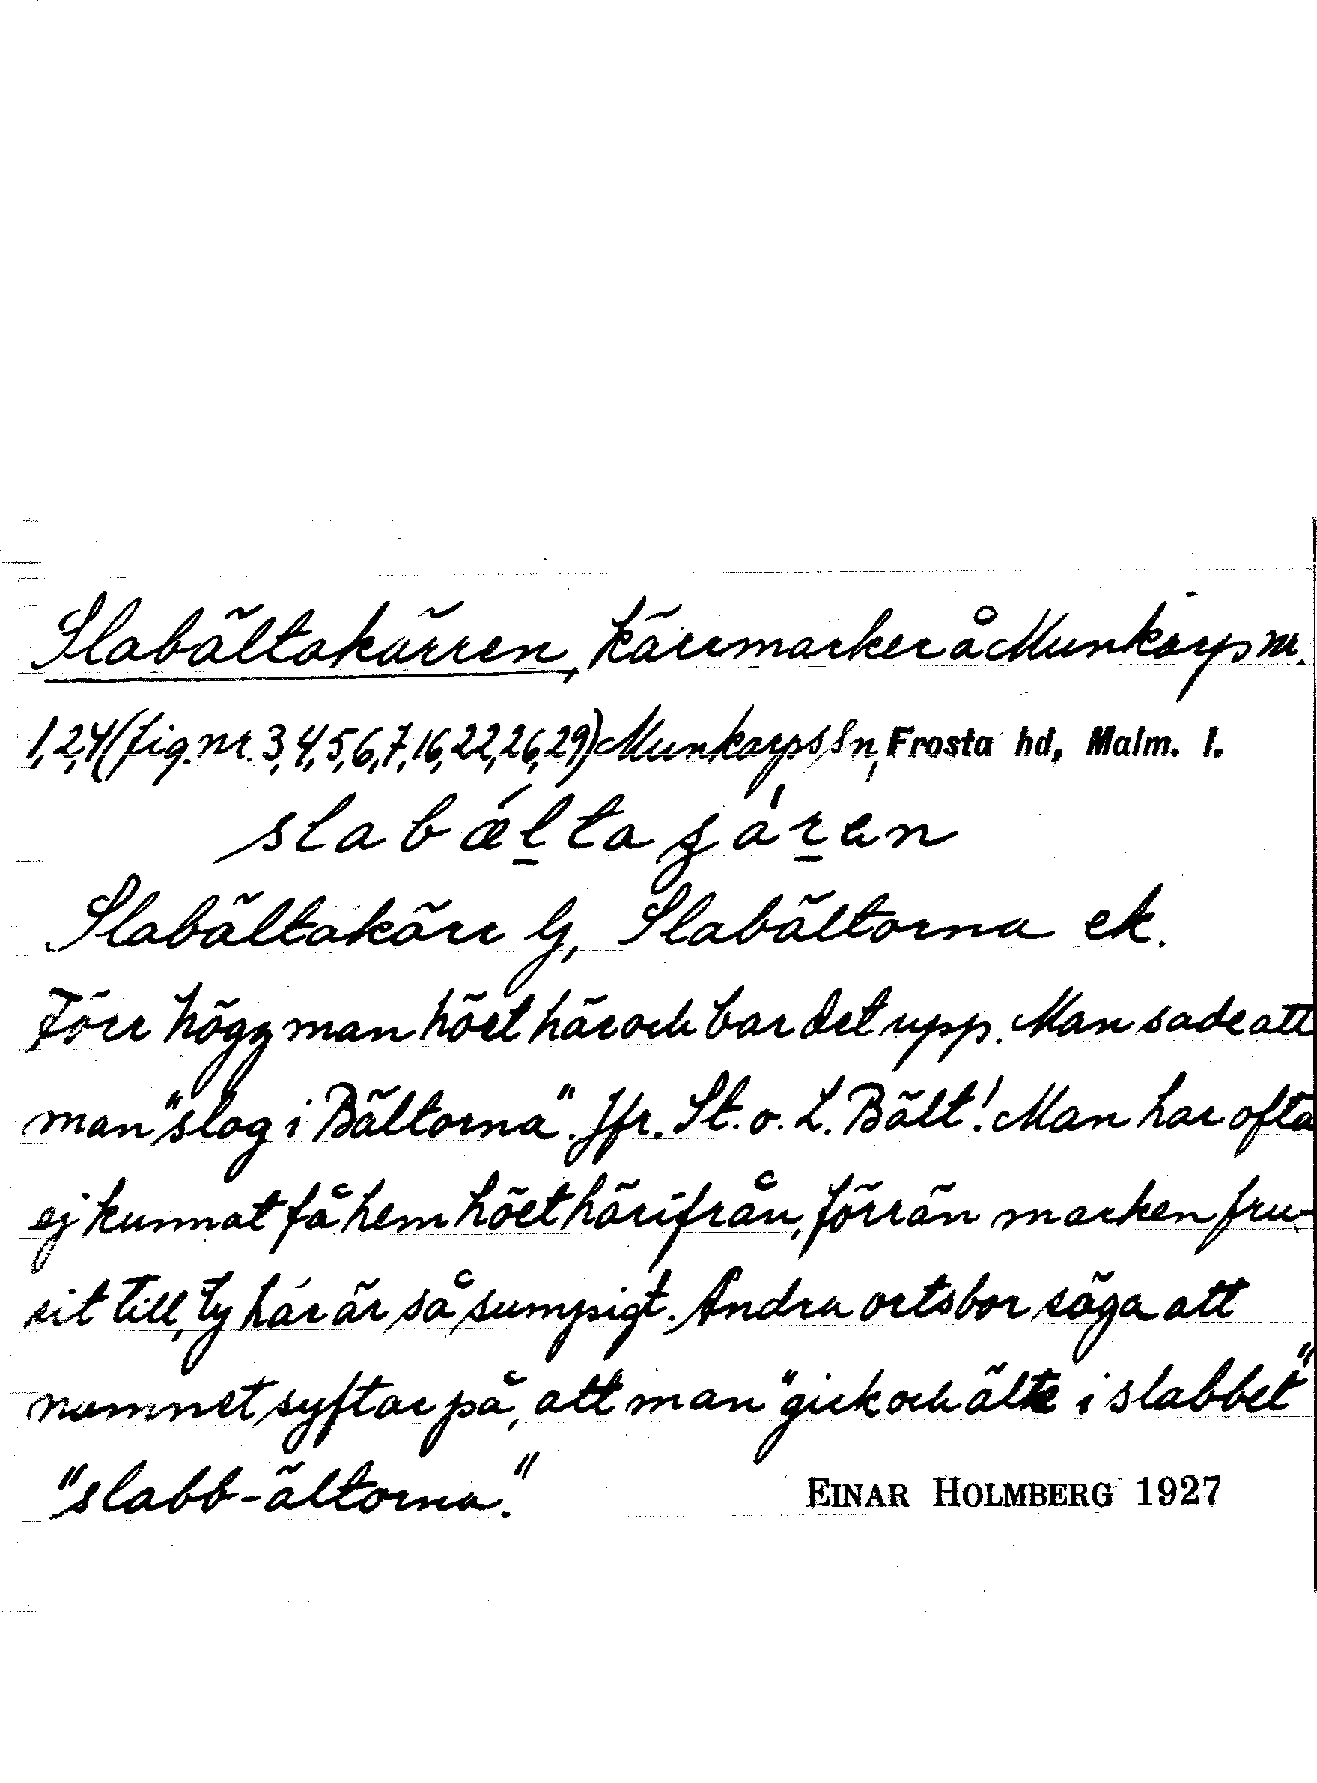 Slabältakärren, kärrmarker å Munkarp nr.
1,2,4 (fig. nr. 3,4,5,6,7,16,22,26,29) Munkarps Sn, Frosta hd, Malm. l.
slabǽltaʒáren
Slabältakärr G, Slabältorna ek.
Förr högg man höet här och bar det upp. Man sade att
man "slog i Bältorna". Jfr. St. o. L. Bält! Man har ofta
ej kunnat få hem höet härifrån, förrän marken fru-
sit till, ty här är så sumpigt. Andra ortsbor säga att
namnet syftar på, att man "gick och älte i slabbet"
"slabb-ältorna."
EINAR HOLMBERG 1927